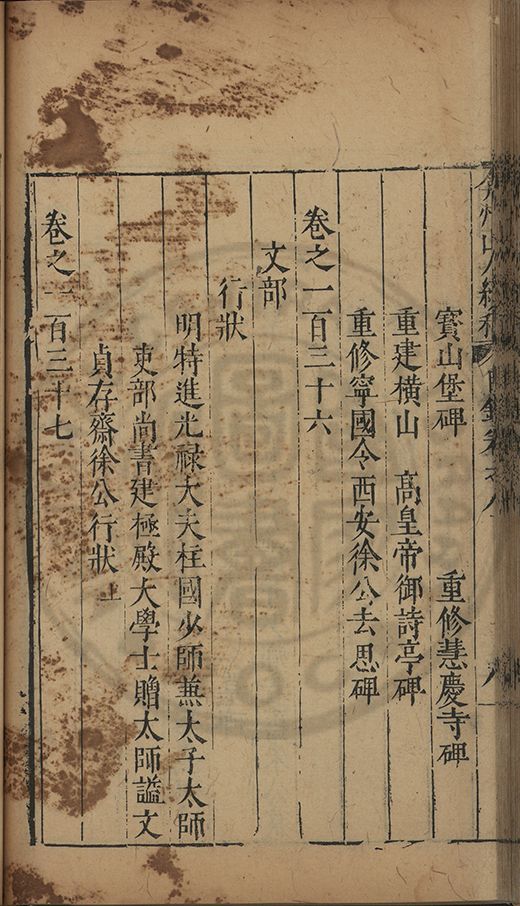 弇州山人續稿 目錄卷之八
寳山堡碑　重修慧慶寺碑
重建橫山　高皇帝御詩亭碑
重修寧國令西安徐公去思碑
卷之一百三十六
文部
行狀
明特進光禄大夫柱國少師兼太子太師
吏部尚書建極殿大學士贈太師謚文
貞存齋徐公行狀上
卷之一百三十七